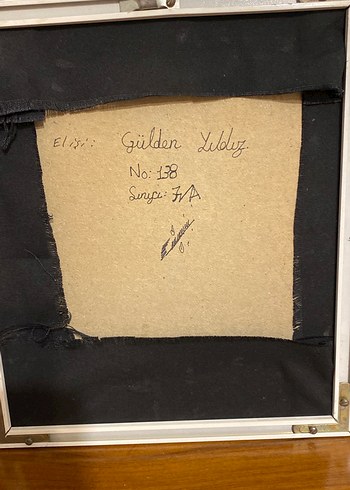 Elişi: Gülden Yıldız.
No: 138
Sınıfı: 7/A